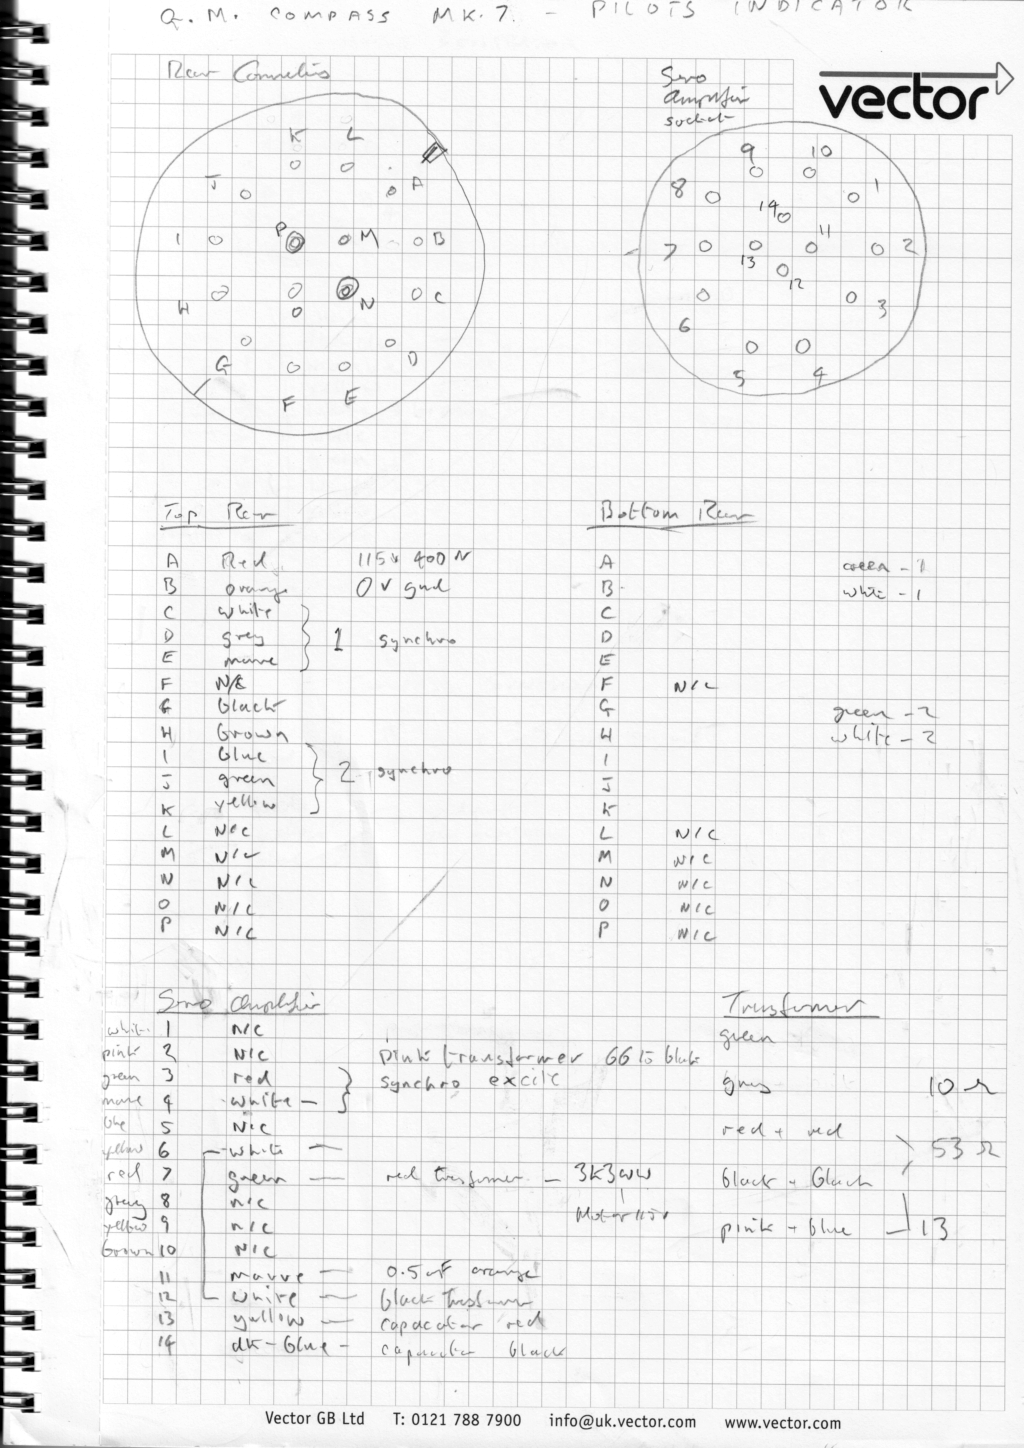 G. M. COMPASS MK. 7. - PILOTS INDICATOR
Rear Connectors
Servo
amplifier
socket
vector
K L
J A
I P M B
H N C
G D
F E
9 10
8 1
14
11
7 2
13
12
6 3
5 4
Top Rear
A Red 115v 400 N
B orange 0 v gnd
C white
D grey 1 synchro
E mauve
F N/C
G black
H brown
I blue
J green 2 synchro
K yellow
L N/C
M N/C
N N/C
O N/C
P N/C
Bottom Rear
A green - 1
B white - 1
C
D
E
F N/C
G green - 2
H white - 2
I
J
K
L N/C
M N/C
N N/C
O N/C
P N/C
Servo Amplifier
white 1 N/C
pink 2 N/C pink transformer 66 to black
green 3 red synchro excite
mauve 4 white -
blue 5 N/C
yellow 6 white -
red 7 green - red transformer - 3K3 WW
Motor 115v
grey 8 N/C
yellow 9 N/C
brown 10 N/C
11 mauve - 0.5 uF orange
12 white - black transformer
13 yellow - capacator red
14 dk-blue - capacator black
Transformer
green
grey 10 Ω
red + red
53 Ω
black + black
pink + blue - 13
Vector GB Ltd T: 0121 788 7900 info@uk.vector.com www.vector.com